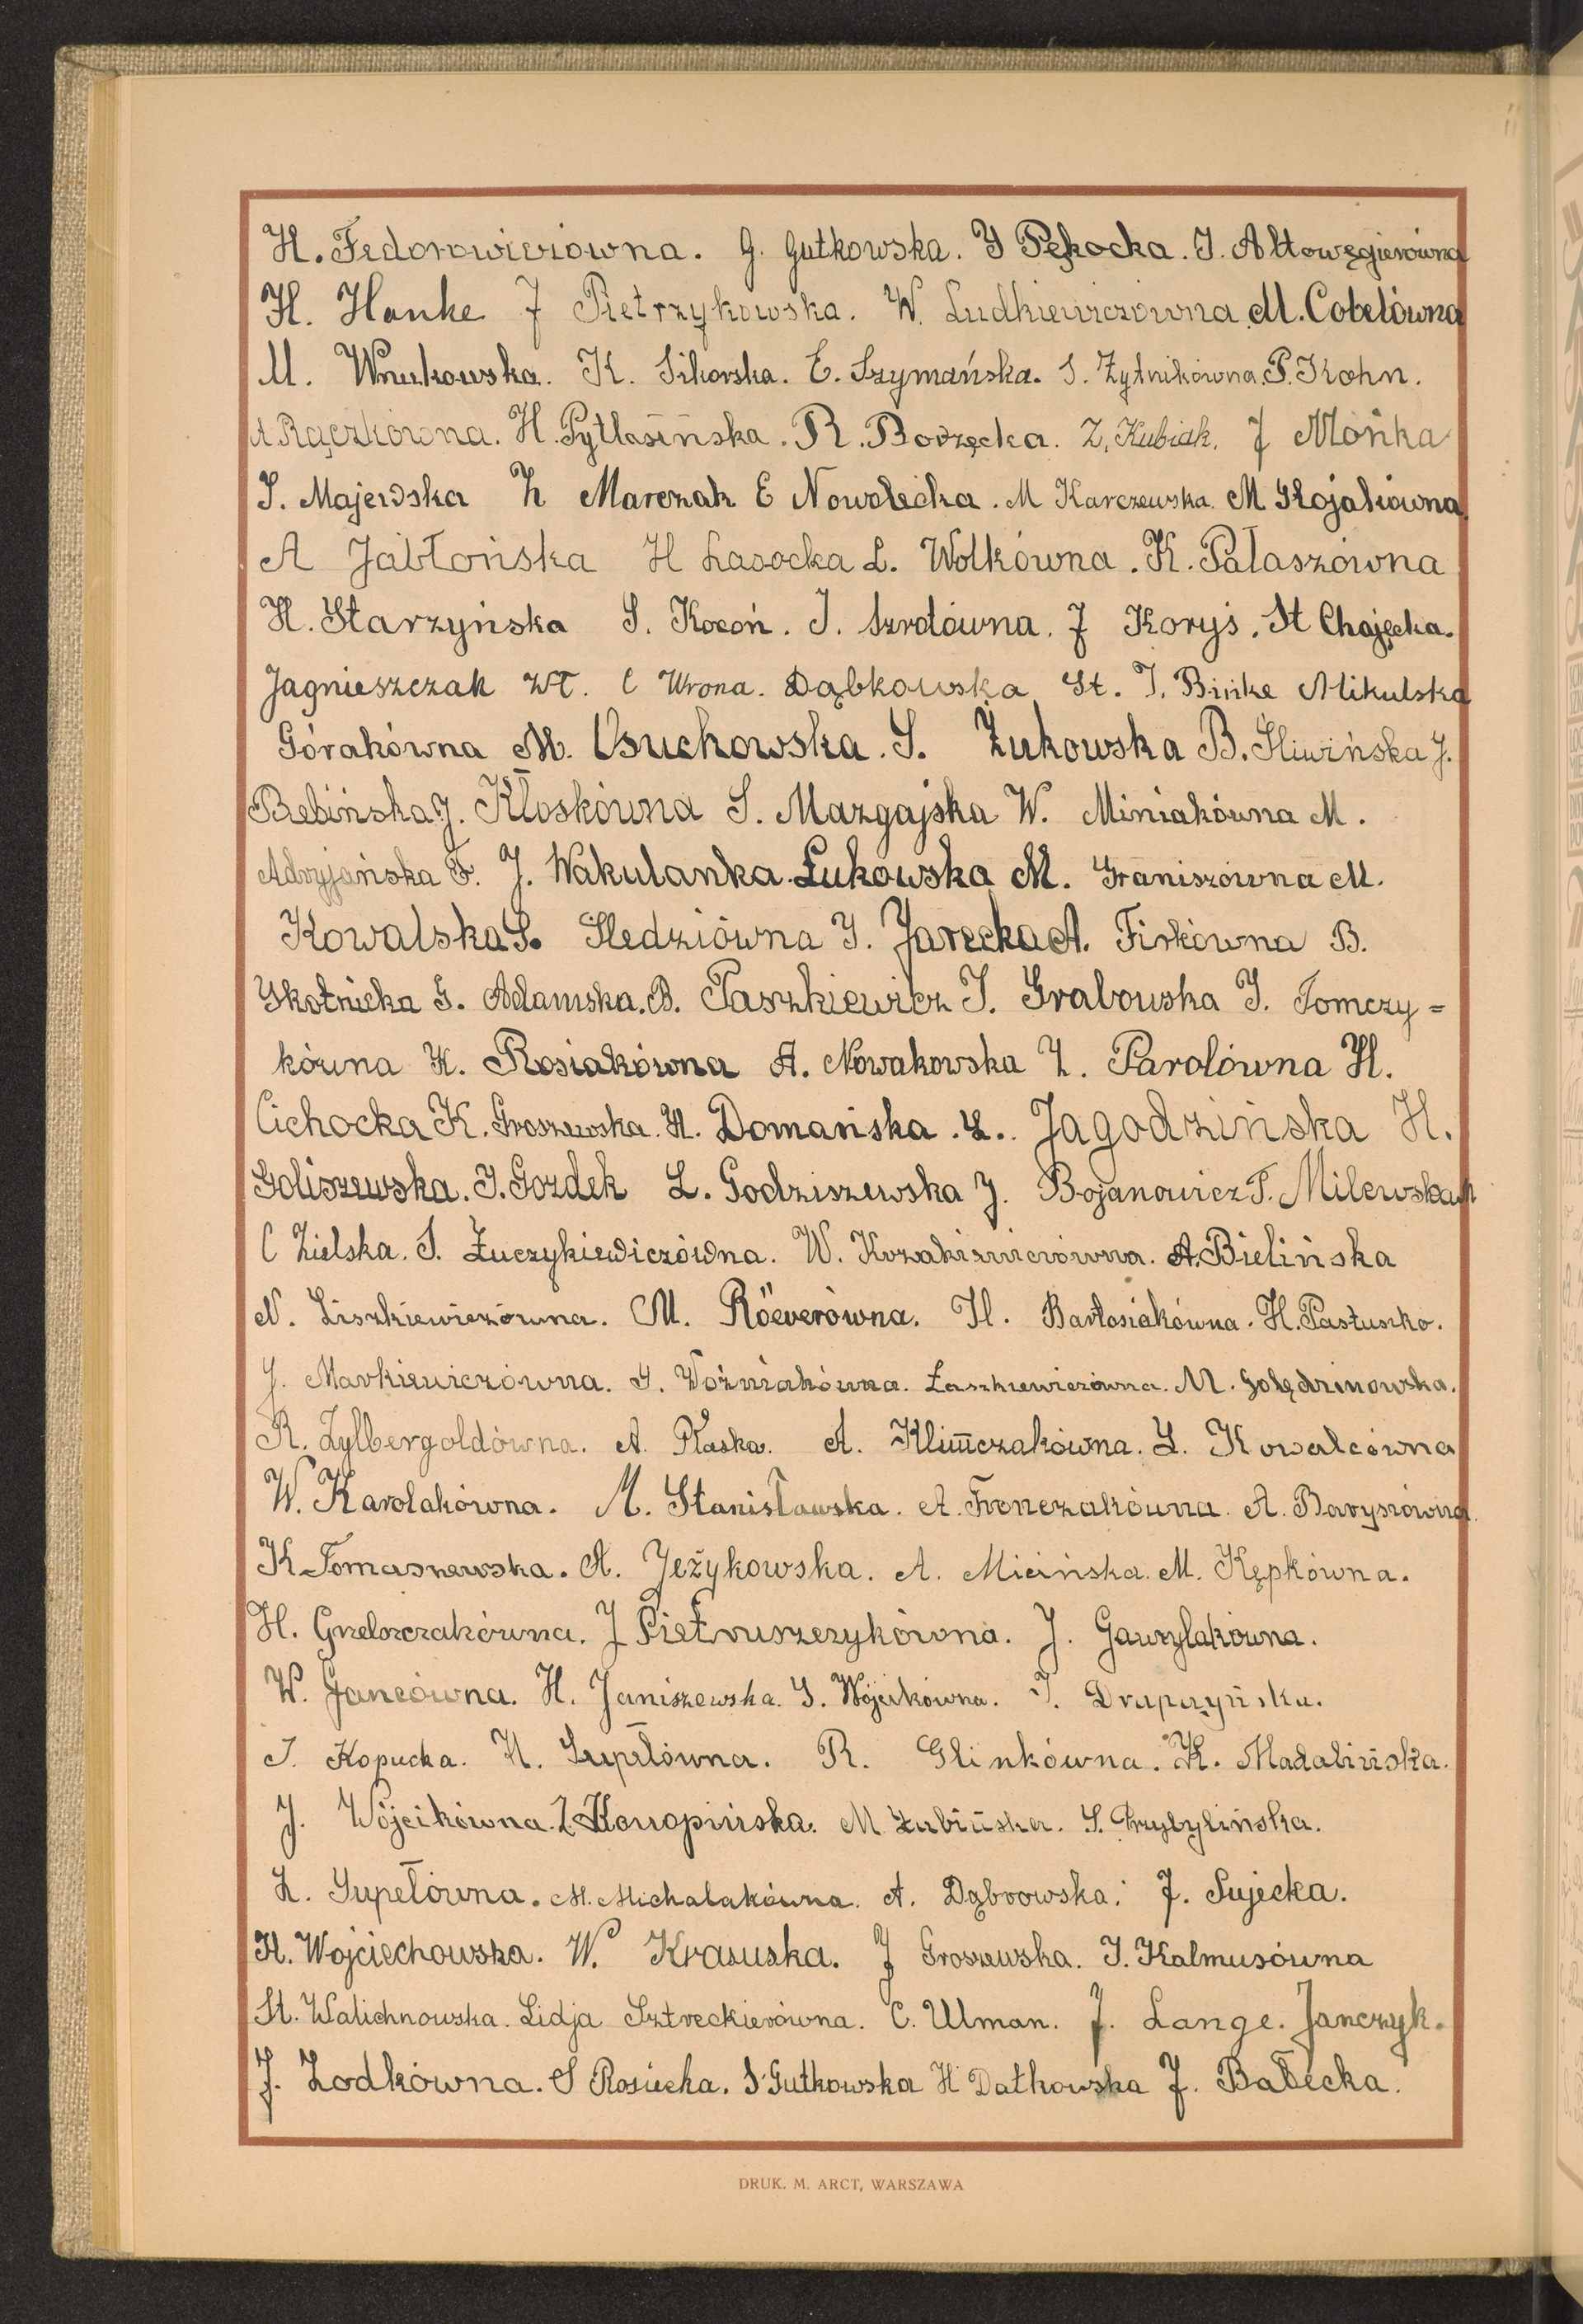 H. Fedorowiczówna. G. Gutkowska. J Pękocka. J. Altowęgierówna
H. Hanke J Pietrzykowska. W. Ludkiewiczówna. M. Cobelówna
M. Wnukowska. K. Sikorska. E. Szymańska. S. Żytnikówna. P. Kohn.
A Rączkówna. H. Pytlasińska. R. Borzęcka. Z. Kubiak. J Mońka
S. Majewska Z Marczak E Nowolecka. M Karczewska. M Skojakówna.
A Jabłońska H Lasocka L. Wolkówna. K. Pałaszówna
H. Starzyńska S. Kocoń. J. Szrotówna. J Koryś. St Chajęcka.
Jagnieszczak Wł. C Wrona. Dąbkowska St. J. Bińke Mikulska
Górakówna M. Osuchowska. S. Żukowska B. Śliwińska J.
Bebińska J. Kłoskówna S. Mazgajska W. Miniakówna M.
Adryjańska F. J. Wakulanka. Łukowska M. Graniszówna M.
Kowalska S. Śledziówna J. Jarecka A. Firkówna B.
Skotnicka G. Adamska. B. Paszkiewicz J. Grabowska J. Tomczy=
kówna K. Rosiakówna A. Nowakowska Z. Parolówna H.
Cichocka K. Groszewska. H. Domańska. L. Jagodzińska H.
Goliszewska. J. Gozdek L. Godziszewska J. Bojanowicz T. Milewska M
C Zielska. S. Żuczykiewiczówna. W. Kozakiewiczówna. A. Bielińska
N. Liszkiewiczówna. M. Röeverówna. H. Bartosiakówna. H. Pastuszko.
J. Markiewiczówna. J. Woźniakówna. Łaszkiewiczówna. M. Golędzinowska.
R. Zylbergoldówna. A. Płaska. A. Klimczakówna. L. Kowalcówna
W. Karolakówna. M. Stanisławska. A. Fronczakówna. A. Barysiówna.
K Tomaszewska. A. Jeżykowska. A. Micińska. M. Kępkówna.
H. Grzelszczakówna. J Pietruszczykówna. J. Gawrylakówna.
W. Jancówna. H. Janiszewska. S. Wójcikówna. J. Drapczyńska.
J. Kopucka. H. Supełówna. R. Glinkówna. K. Madalińska.
J. Wójcikówna. Z Konopińska. M Łubińska. S. Przybylińska.
L. Supełówna. M. Michalakówna. A. Dąbrowska. J. Sujecka.
H. Wojciechowska. W. Krasuska. J Groszewska. J. Kalmusówna
St. Walichnowska. Lidja Sztreckierówna. C. Ulman. J. Lange. Janczyk.
J. Zodkówna. S Rosiecka. S. Gutkowska H Datkowska J. Bałecka.
DRUK. M. ARCT, WARSZAWA